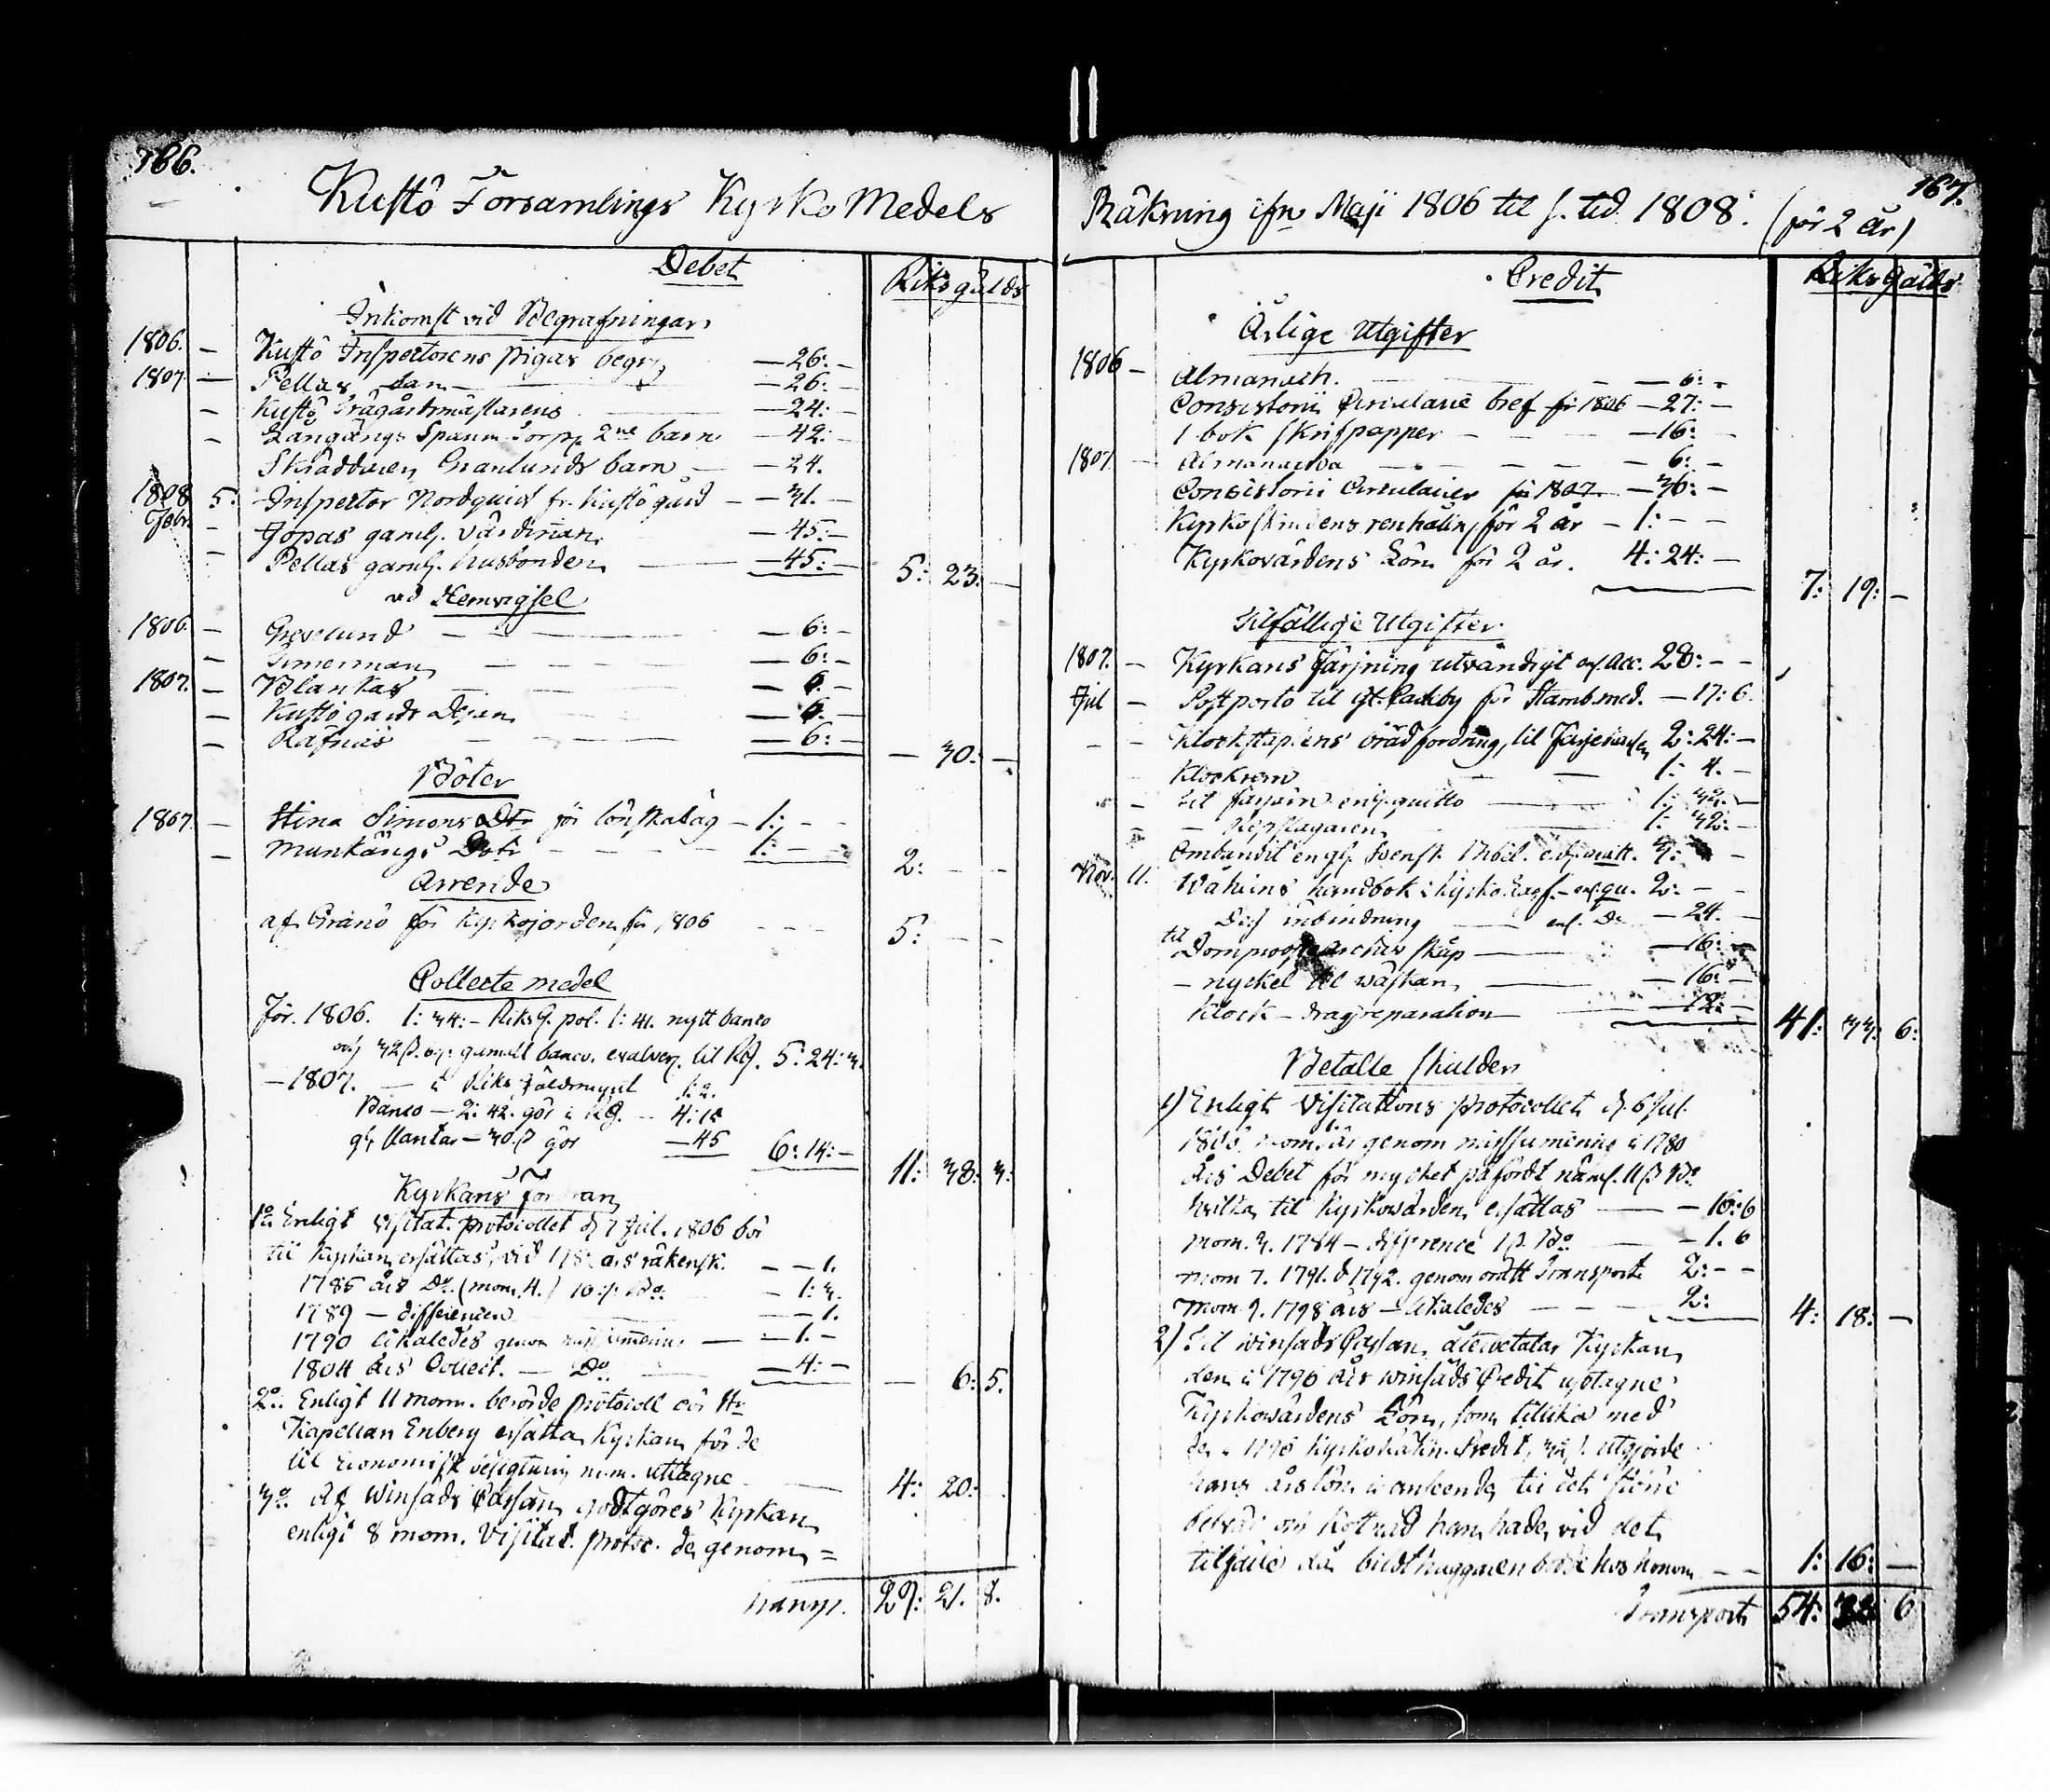 166.
Kustö Församlings Kyrko Medels
Debet
Riksgälds
Inkomst vid Begrafningar
1806. — Kustö Inspectorens pigas begr. — 26: —
1807. — Pellas barn — 26: —
— Kustö Trägårdsmästarens — 24: —
— Långängs Spanm. Torpp. 2ne barn — 42: —
Skräddaren Granlunds barn — 24.
1808 Febr. 5: Inspector Nordquist fr. Kustö gård — 31. —
— Jopas gaml. Värdinnan — 45: —
— Pellas gaml. husbonden — 45: — 5: 23: —
vid Hemvigsel
1806. — Grevlund — 6: —
— Timerman — 6: —
1807. — Blankas — 6. —
— Kustö gårds Dejan — 6. —
— Rafnäs — 6: — — 30: —
Böter
1807 — Stina Simons Dtr för lönskaläg — 1: — —
— Munkängs Dotr — 1: — — 2: — —
Arrende
af Granö för Kyrkojorden för 1806 — — — 5: — —
Collecte medel
För 1806. 1: 34: — Riks G. pol. 1: 41. nytt banco
och 32 ß. gamalt banco. evalver. til RG. 5: 24: 3.
— 1807. — i Riks Gäldsmynt 1: 2.
Banco — 2: 42. gör i RG. — 4: 15
Kantar — 30 ß gör — 45 6: 14: — 11: 38: 3:
Kyrkans fordran
1o. Enligt Visitat. protocollet d. 7 Jul. 1806 bör
til Kyrkan ersättas, vid 178 års räkensk. — — 1.
1786 års Do. (mom. 4.) — 1: 3.
1789 — differencen — 1.
1790 likaledes genom — 1. —
1804 års Collect. — Do. — 4: — — 6: 5.
2o. Enligt 11 mom. berörde protocoll bör Hr
Kapellan Enberg ersätta Kyrkan för de
til Economisk besigtning m.m. uttagne 4: 20:
3o. Af Winsåds Cassan godtgöres Kyrkan
enligt 8 mom. Visitat. protoc. de genom =
Transp. 29: 21. 8.
167.
Räkning ifrn Maji 1806 til s. tid 1808. (för 2 år)
Credit
Riks Gälds
Årlige Utgifter
1806 — Almanach. — — 6: —
Consistorii Circulaire bref för 1806 — 27: —
1 bok skrifpapper — — — 16: —
1807 — Almanacha — — — — 6: —
Consistorii Circulairer för 1807. — 36: —
Kyrkoskrudens renhåling för 2 år — 1: — —
Kyrkovärdens Lön för 2 år. 4: 24: — 7: 19: —
Tilfällige Utgifter
1807. — Kyrkans Färjning utvändigt enl. Acc. 28: — —
Jul — Postporto til för Stamb.med. — 17: 6.
— — Klockstapelens brädfordring, til Färjekarlen 2: 24: —
Klockrem 1: 4. —
— til färjan enl. quitto 1: 32. —
— Repslagaren 1: 32: —
Ombundit en gl. Svensk Bibel. enl. quitt. 3: —
Nov. 11. Wåhlins handbok i Kyrko Lagf. enl. qu. 2: — —
Dess inbindning enl. Do — 24. —
til skåp — 16: —
— nyckel til wäskan — 16: —
Klock — dragreparation — 12: — 41: 33: 6:
Betalte skulder
1) Enligt Visitations protocollet d. 6 Jul.
1806 mom. är genom missumering i 1780
års Debet för mycket påfördt näml. 11 ß Bo
hvilka til Kyrkowärden ersättas — — 16: 6
mom. 3. 1784 — difference 1 ß. Bo — — 1. 6
mom 7. 1791. & 1792. genom orätt Transport 2: — —
mom. 9. 1798 års — likaledes — — 2: 4: 18: —
2) Til winsåds Cassan återbetalar Kyrkan
den i 1796 års winsåds Credit uptagne
Kyrkowärdens Lön, som tillika med
de i 1796 Kyrko Räkn. Credit, utgjorde
hans årslön i anseende til det större
besvär och kostnad han hade, vid det
tilfälle då bildthuggaren bodde hos honom — — 1: 16: —
Transport 54: 38 6